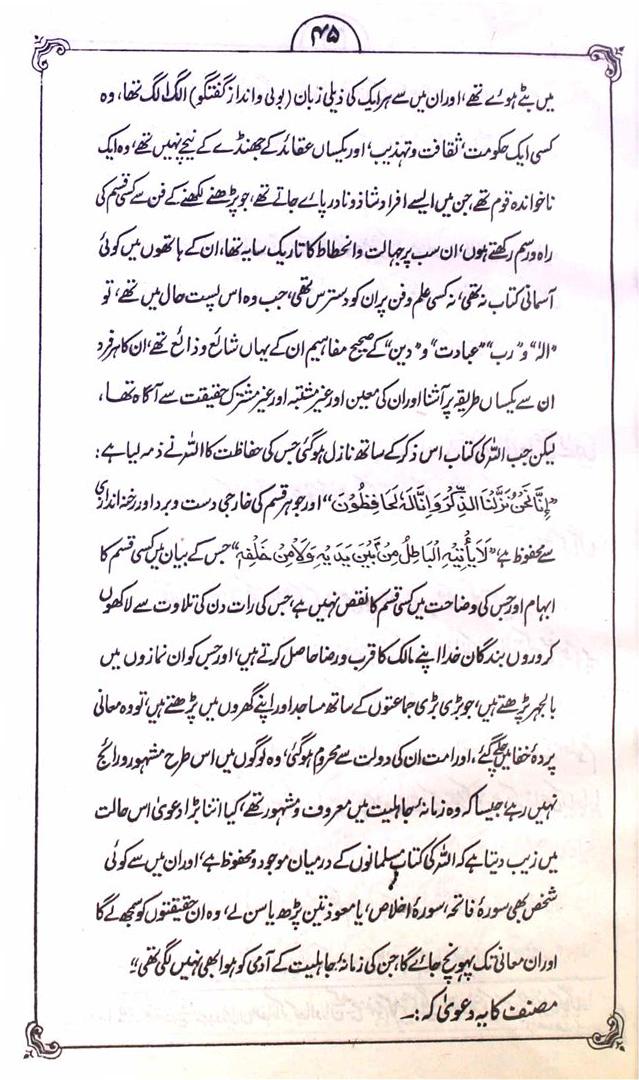 ۴۵
میں بٹے ہوئے تھے، اور ان میں سے ہر ایک کی ذیلی زبان (بولی و انداز گفتگو) الگ الگ تھا، وہ
کسی ایک حکومت، ثقافت و تہذیب، اور یکساں عقائد کے جھنڈے کے نیچے نہیں تھے، وہ ایک
ناخواندہ قوم تھے، جن میں ایسے افراد شاذ و نادر پائے جاتے تھے، جو پڑھنے لکھنے کے فن سے کسی قسم کی
راہ و رسم رکھتے ہوں، ان سب پر جہالت و انحطاط کا تاریک سایہ تھا، ان کے ہاتھوں میں کوئی
آسمانی کتاب نہ تھی، نہ کسی علم و فن پر ان کو دسترس تھی، جب وہ اس پست حال میں تھے، تو
"الٰہ" و "رب" "عبادت" و "دین" کے صحیح مفاہیم ان کے یہاں شائع و ذائع تھے، ان کا ہر فرد
ان سے یکساں طریقہ پر آشنا اور ان کی معین اور غیر مشتبہ اور غیر مشترک حقیقت سے آگاہ تھا،
لیکن جب اللہ کی کتاب اس ذکر کے ساتھ نازل ہو گئی جس کی حفاظت کا اللہ نے ذمہ لیا ہے :
"إِنَّا نَحْنُ نَزَّلْنَا الذِّكْرَ وَإِنَّا لَهُ لَحَافِظُونَ" اور جو ہر قسم کی خارجی دست و برد اور رخنہ اندازی
سے محفوظ ہے، "لَا يَأْتِيْهِ الْبَاطِلُ مِنْ بَيْنِ يَدَيْهِ وَلَا مِنْ خَلْفِهٖ" جس کے بیان میں کسی قسم کا
ابہام اور جس کی وضاحت میں کسی قسم کا نقص نہیں ہے، جس کی رات دن کی تلاوت سے لاکھوں
کروروں بندگان خدا اپنے مالک کا قرب و رضا حاصل کرتے ہیں، اور جس کو ان نمازوں میں
بالجہر پڑھتے ہیں، جو بڑی بڑی جماعتوں کے ساتھ مساجد اور اپنے گھروں میں پڑھتے ہیں، تو وہ معانی
پردۂ خفا میں چلے گئے، اور امت ان کی دولت سے محروم ہو گئی، وہ لوگوں میں اس طرح مشہور و رائج
نہیں رہے، جیسا کہ وہ زمانۂ جاہلیت میں معروف و مشہور تھے، کیا اتنا بڑا دعویٰ اس حالت
میں زیب دیتا ہے کہ اللہ کی کتاب مسلمانوں کے درمیان موجود و محفوظ ہے، اور ان میں سے کوئی
شخص بھی سورۂ فاتحہ، سورۂ اخلاص، یا معوذتین پڑھ یا سن لے، وہ ان حقیقتوں کو سمجھ لے گا
اور ان معانی تک پہونچ جائے گا، جن کی زمانۂ جاہلیت کے آدمی کو ہوا بھی نہیں لگی تھی۔"
مصنف کا یہ دعویٰ کہ :۔